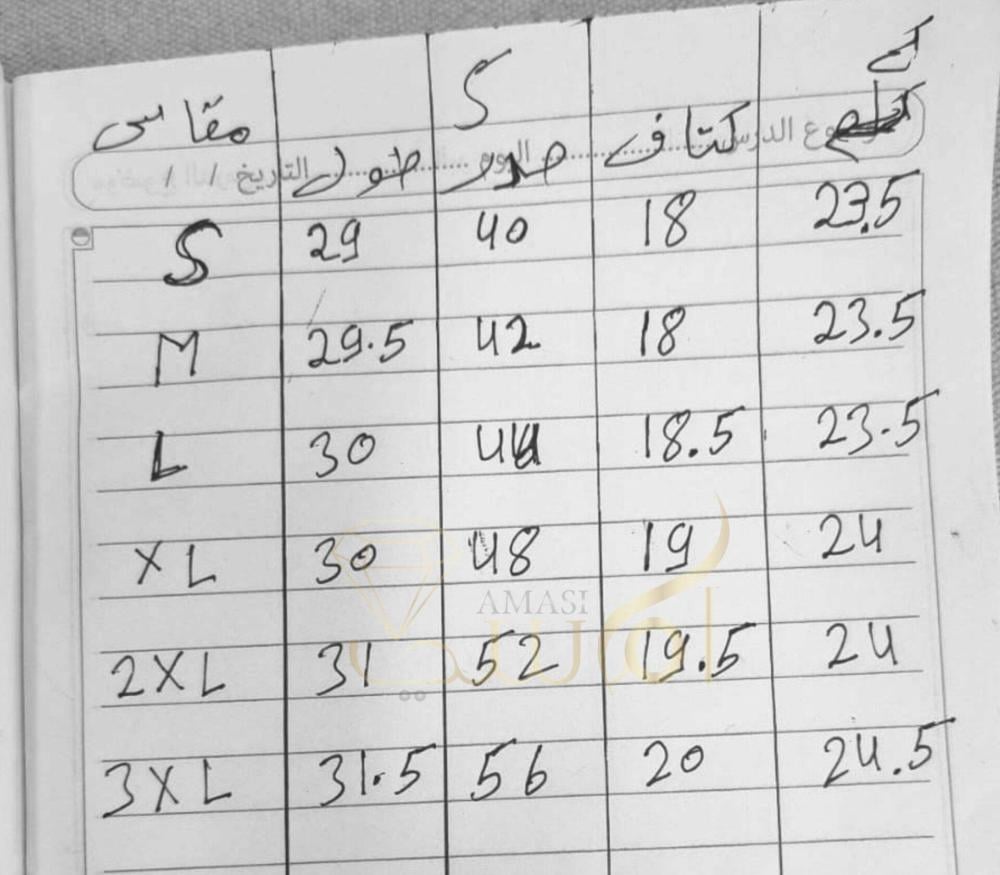 S
كم
مقاس طول صدر كتاف
موضوع الدرس اليوم التاريخ / /
S 29 40 18 23.5
M 29.5 42 18 23.5
L 30 44 18.5 23.5
XL 30 48 19 24
AMASI
2XL 31 52 19.5 24
3XL 31.5 56 20 24.5